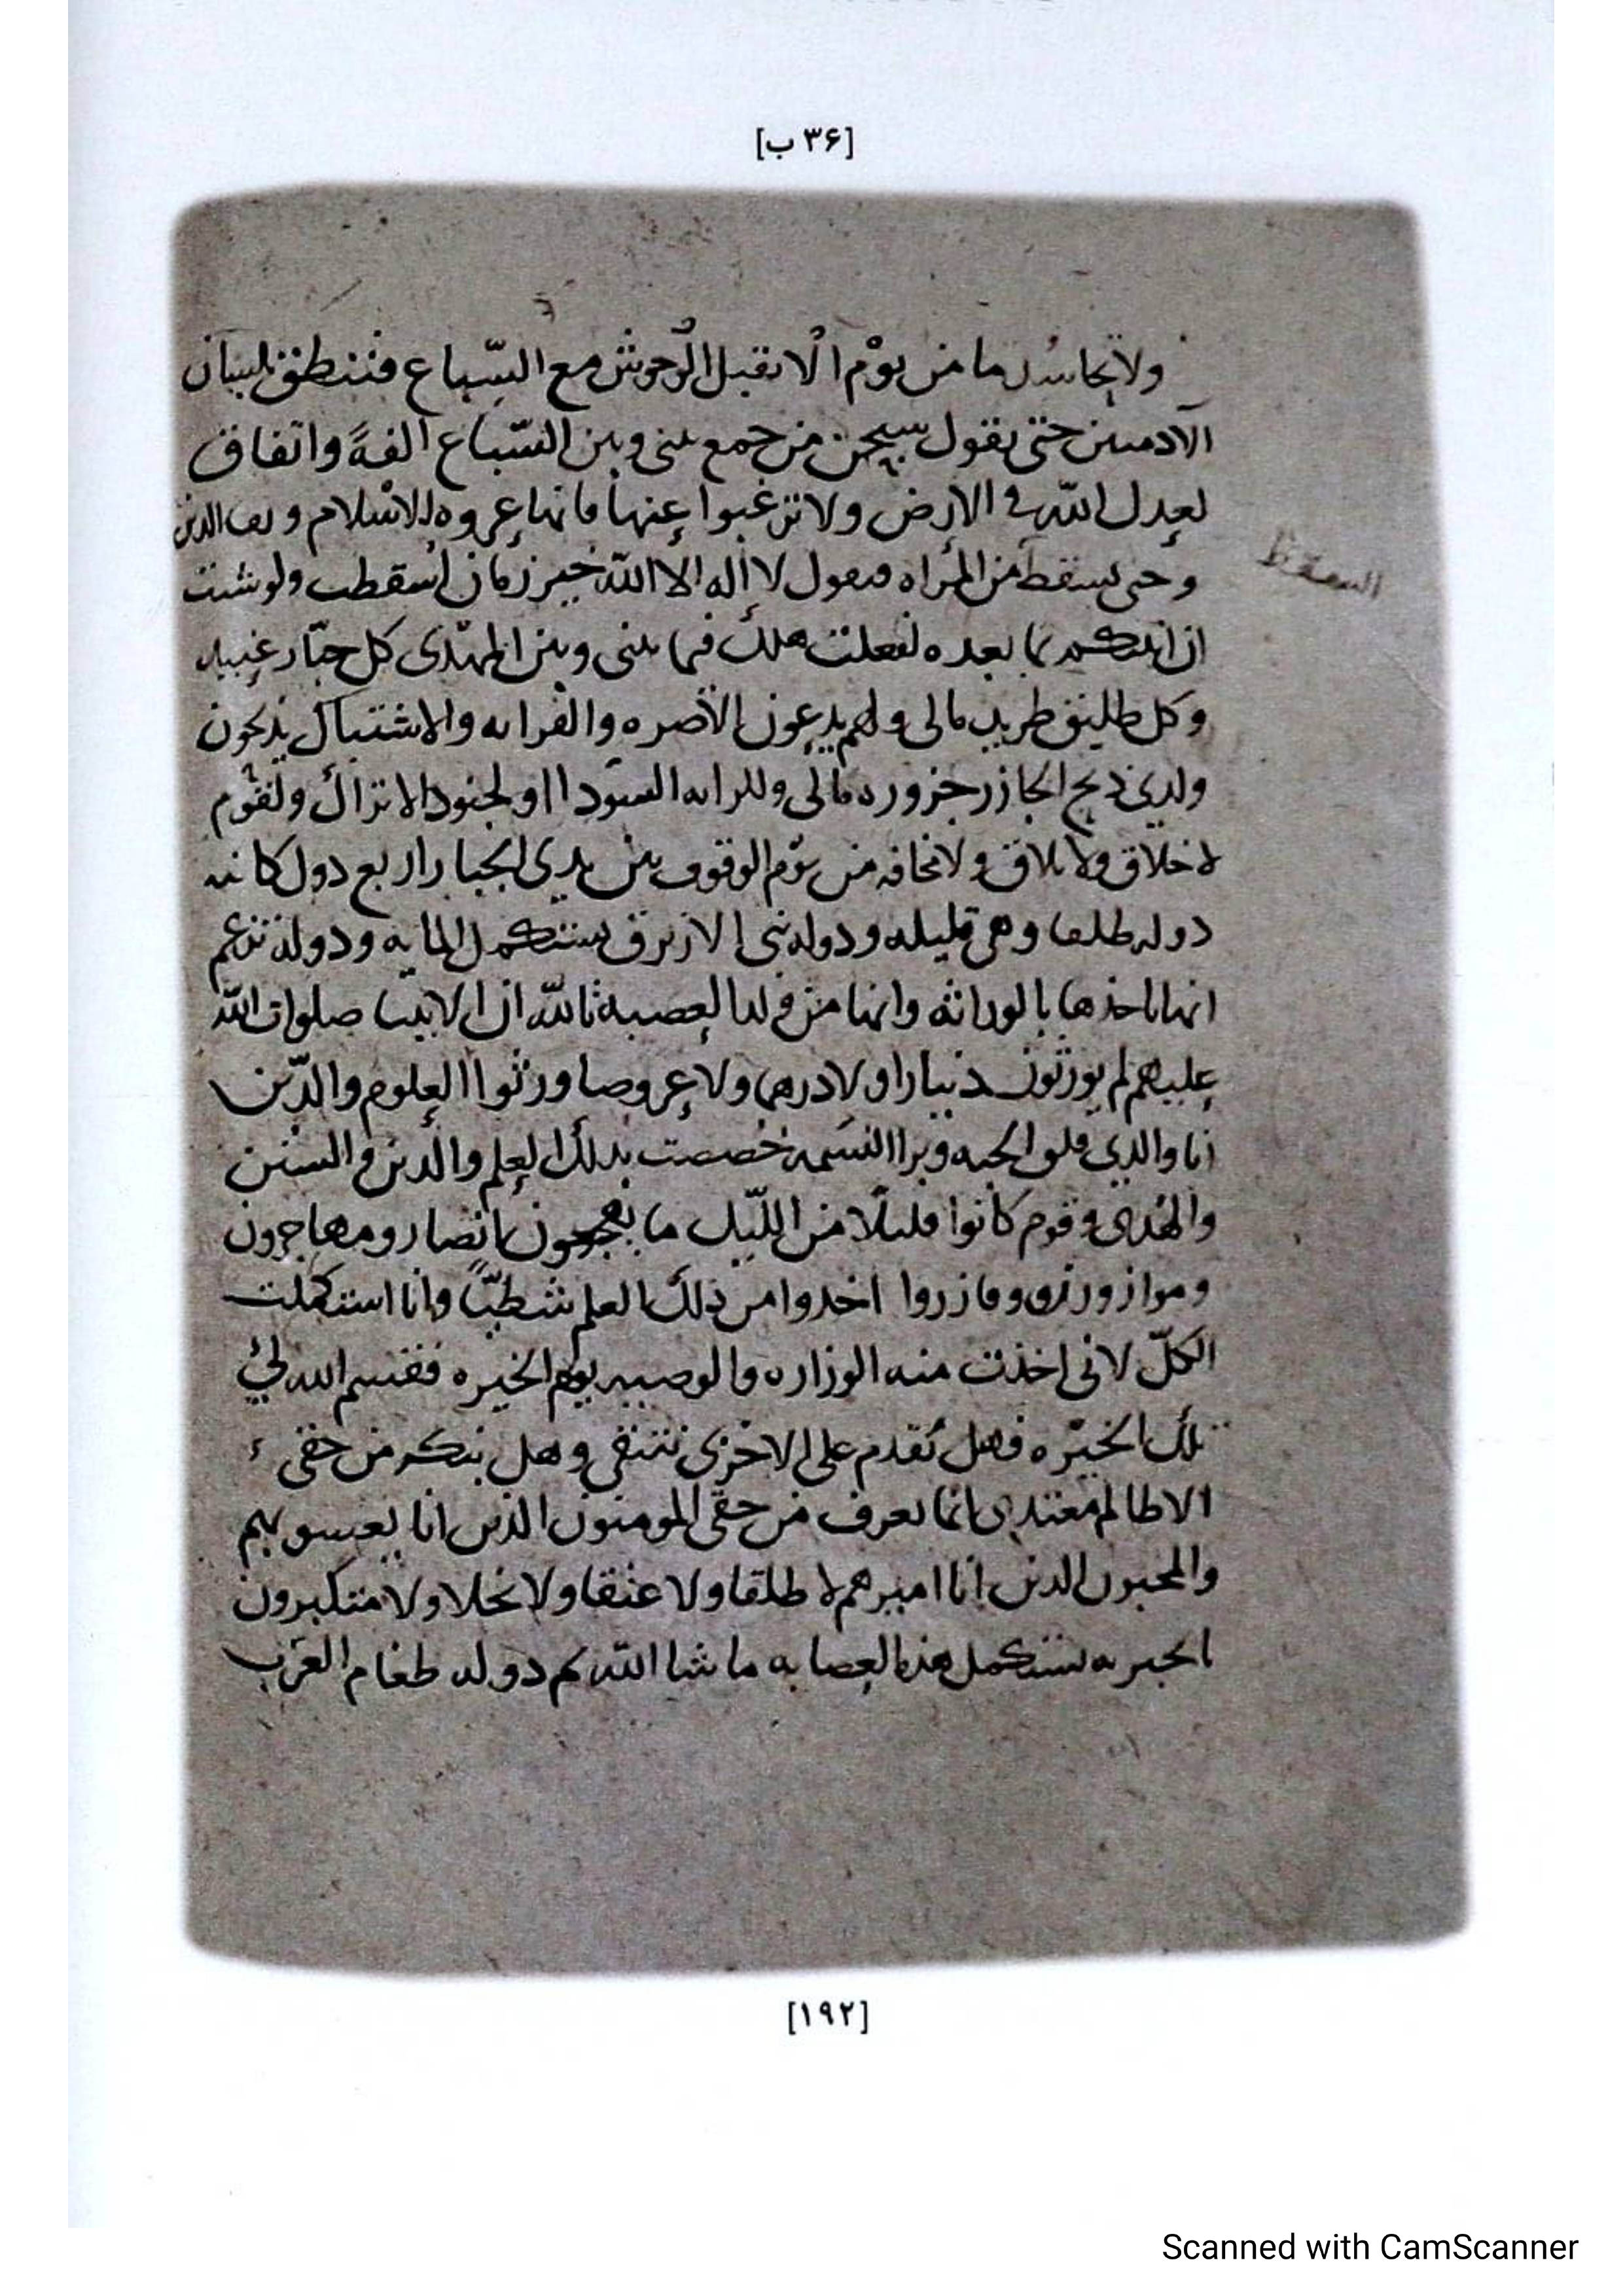 [۳۶ ب]
ولا تحاسد ما من يوم الا يقبل الوحوش مع السباع فتنطق بلسان
الآدميين حتى يقول سبحن من جمع بيني وبين السباع الفة واتفاق
لعدل الله في الارض ولا ترغبوا عنها فانها عروه الاسلام
وحتى يسقط من المراه فيقول لا اله الا الله خير زمان اسقطت ولو شئت
ان انبئكم بما بعده لفعلت هلك فيما بيني وبين المهدى كل جبار عنيد
وكل طليق طريد مالي ولهم يدعون الأصره والقرابه والاشتبال يذبحون
ولدي ذبح الجازر جزوره مالي وللرايه السودا اولجنود الاتراك ولقوم
لا خلاق ولا بلاق ولا مخافه من يوم الوقوف بين يدى الجبار اربع دول كاينه
دوله طلقا وهي قليله ودوله بنى الازرق يستكمل المايه ودوله تزعم
انها تاخذها بالوراثه وانها من العصبه تالله ان الانبيا صلوات الله
عليهم لم يورثون دينارا ولا درهما ولا عروصا ورثوا العلوم والدين
انا والذي فلق الحبه وبرا النسمه خصصت بذلك العلم والدين والسنن
والهدى وقوم كانوا قليلا من الليل ما يهجعون انصار ومهاجرون
وموازروني ومازروا اخذوا من ذلك العلم شطبًا وانا استكملت
الكل لاني اخذت منه الوزاره والوصيه يوم الخيره فقسم الله لي
تلك الخيره فهل تقدم على الاخرى تنتفي وهل ينكر من حقي
الا ظالم معتدى انما يعرف من حقي المومنون الذين انا يعسوبهم
والمحبون الذين انا اميرهم لا طلقا ولا عتقا ولا بخلا ولا متكبرون
الجبريه يستكمل هذه العصابه ما شا الله كم دوله طغام العرب
[۱۹۲]
Scanned with CamScanner